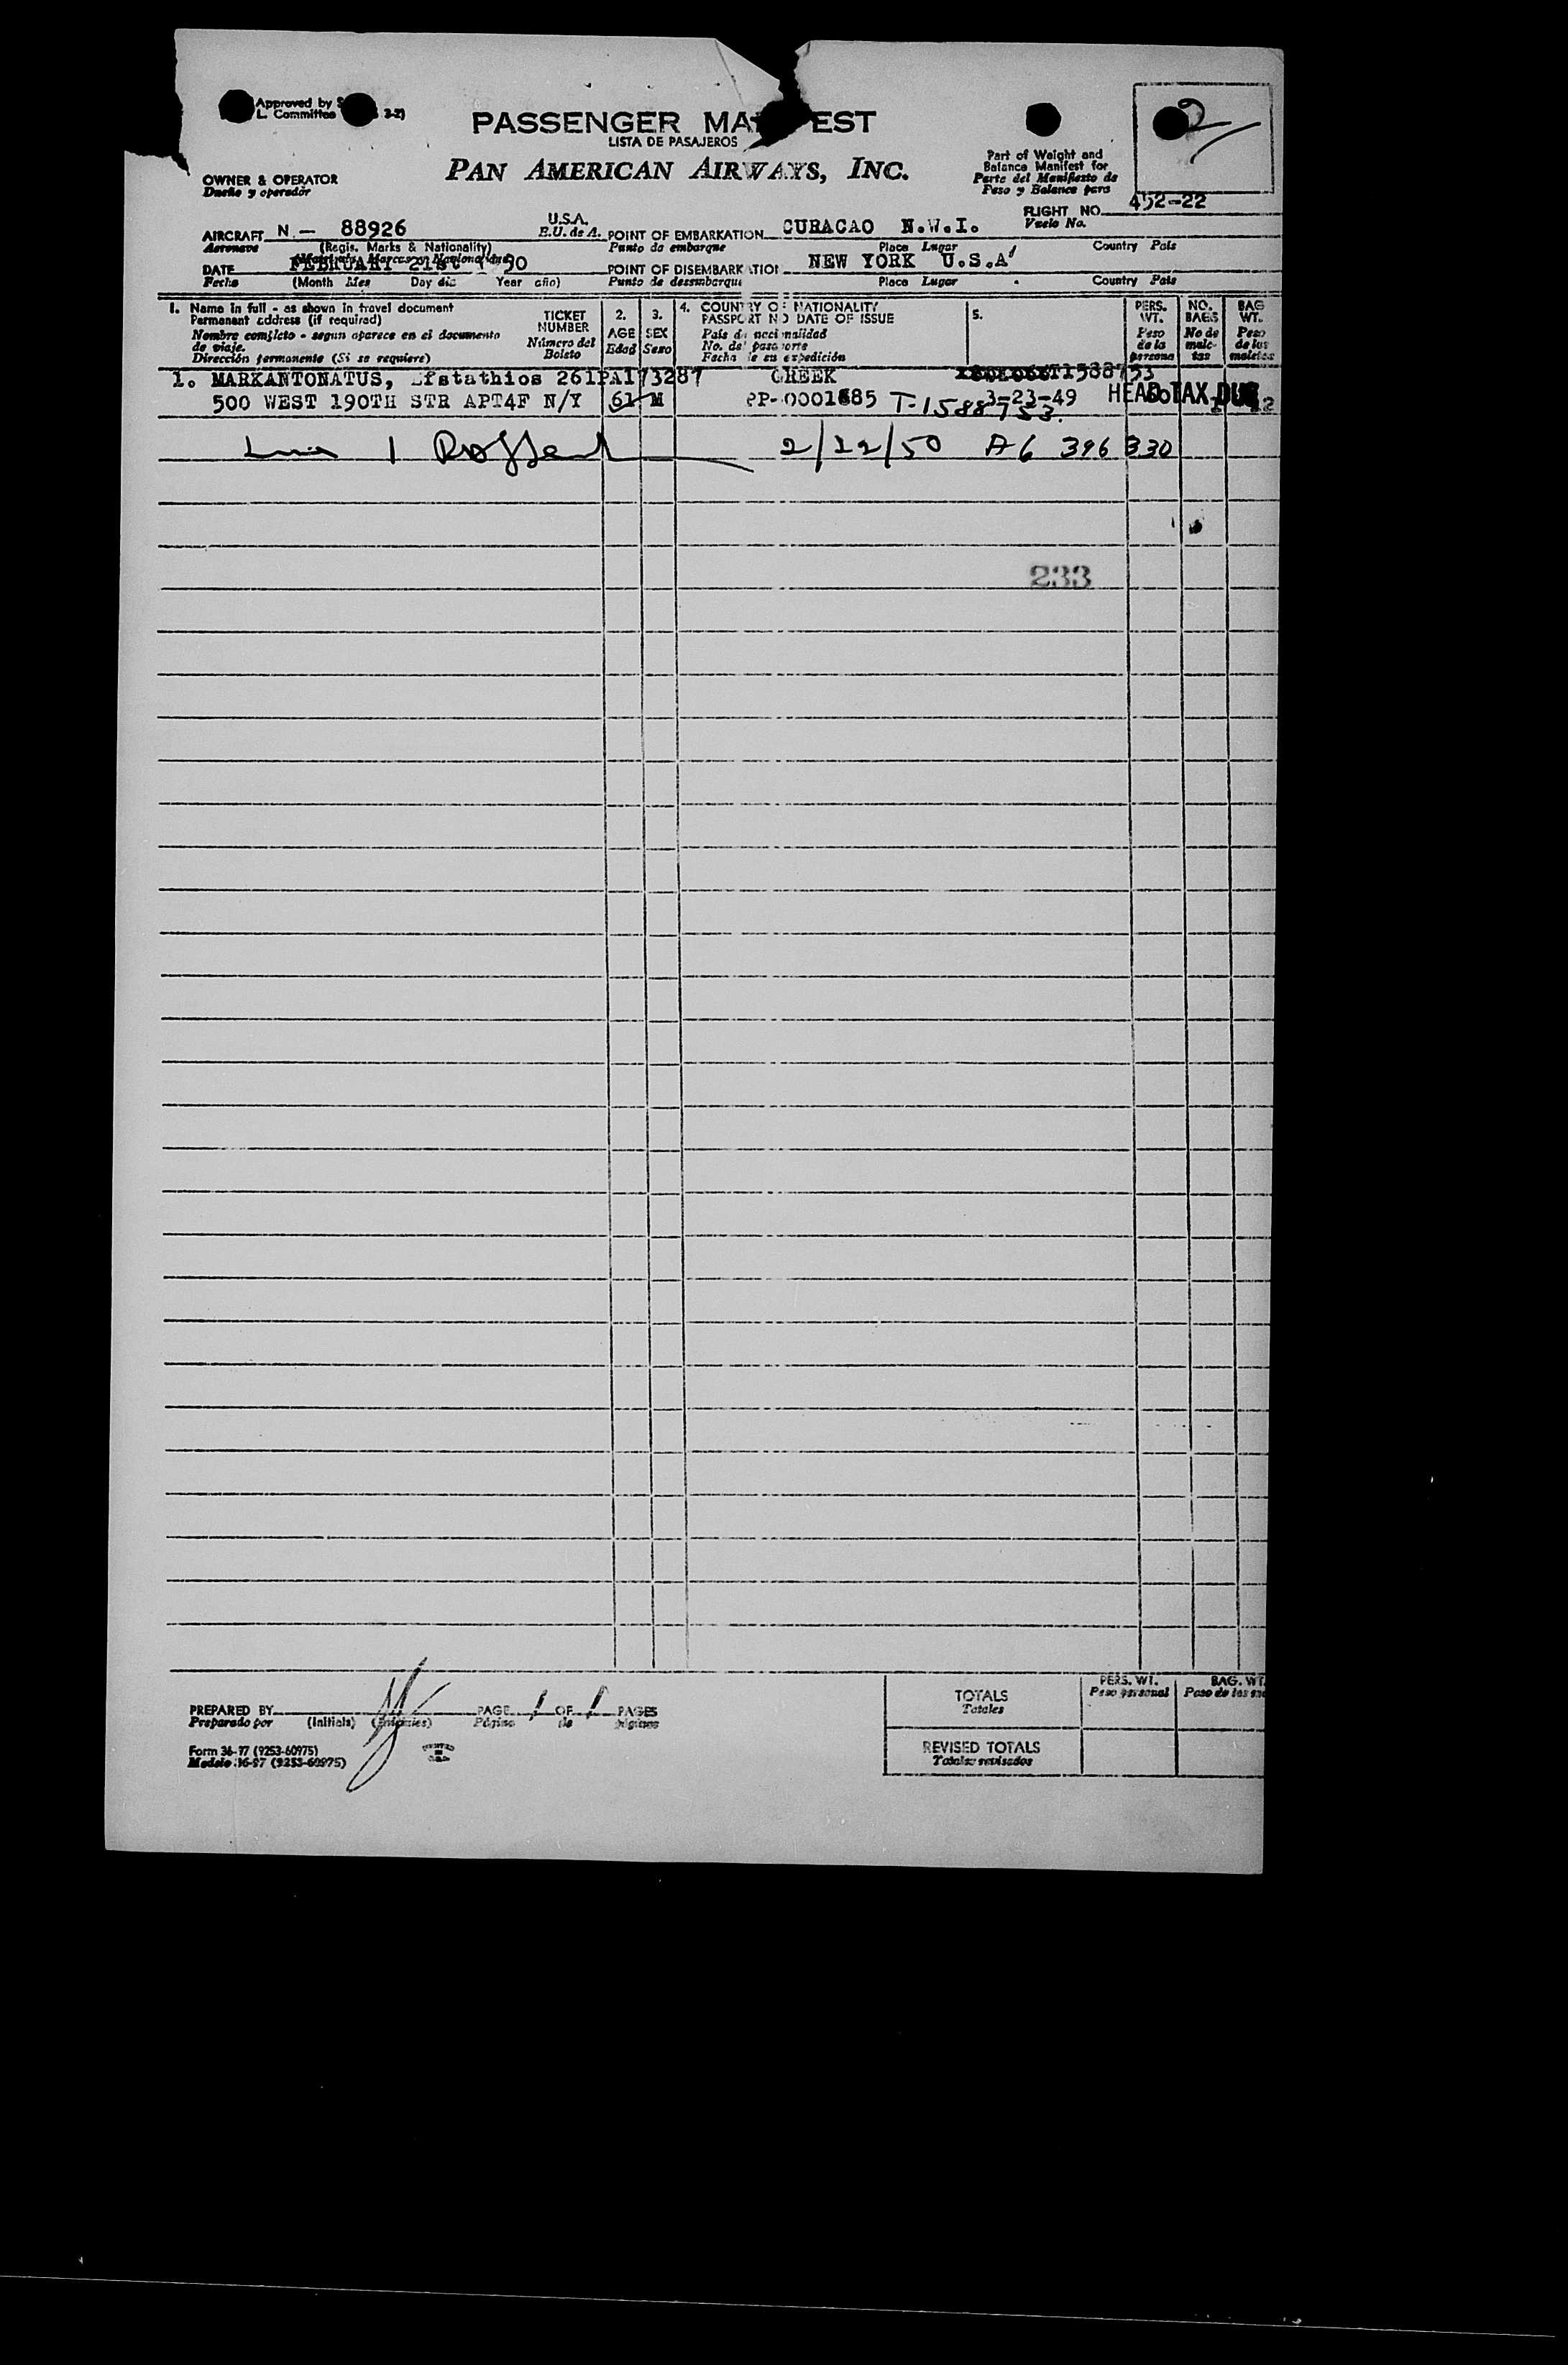 Approved by
L. Committee 3-2)
2
PASSENGER MA EST
LISTA DE PASAJEROS
PAN AMERICAN AIRWAYS, INC.
Part of Weight and
Balance Manifest for
Parte del Manifiesto de
Peso y Balance para
OWNER & OPERATOR
Dueño y operador
FLIGHT NO. 452-22
Vuelo No.
AIRCRAFT N — 88926 U.S.A. POINT OF EMBARKATION CURACAO N.W.I.
Aeronave (Regis. Marks & Nationality) E.U. de A. Punto de embarque Place Lugar Country Pais
DATE FEBRUARY 21st 1950 POINT OF DISEMBARKATION NEW YORK U.S.A
Fecha (Month Mes Day dia Year año) Punto de desembarque Place Lugar Country Pais
1. Name in full - as shown in travel document
Permanent address (if required)
Nombre completo - segun aparece en el documento
de viaje.
Dirección permanente (Si se requiere)
TICKET
NUMBER
Número del
Boleto
2.
AGE
Edad
3.
SEX
Sexo
4. COUNTRY OF NATIONALITY
PASSPORT NO DATE OF ISSUE
País de nacionalidad
No. del pasaporte
Fecha de su expedición
5.
PERS.
WT.
Peso
de la
persona
NO.
BAGS
No de
male-
tas
BAG
WT.
Peso
de las
maletas
1. MARKANTONATUS, Efstathios 261PA173287 GREEK T1588753
500 WEST 190TH STR APT4F N/Y 61 M PP-0001685 3-23-49 HEAD TAX DUE
T-1588753.
2/22/50 A6 396 330
233
PREPARED BY PAGE 1 OF 1 PAGES
Preparado por (Initials) (Iniciales) Página de páginas
Form 36-97 (9253-60975)
Modelo 36-97 (9253-60975)
TOTALS
Totales
REVISED TOTALS
Totales revisados
PERS. WT.
Peso personal
BAG. WT.
Peso de las